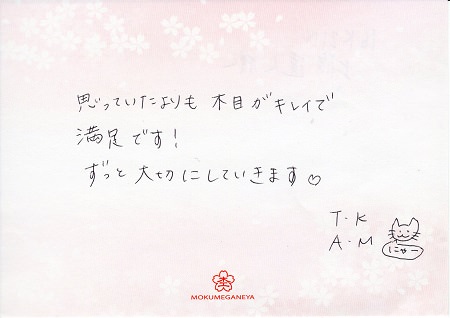 思っていたよりも 木目がキレイで
満足です!
ずっと大切にしていきます♡
T・K
A・M
にゃー
MOKUMEGANEYA